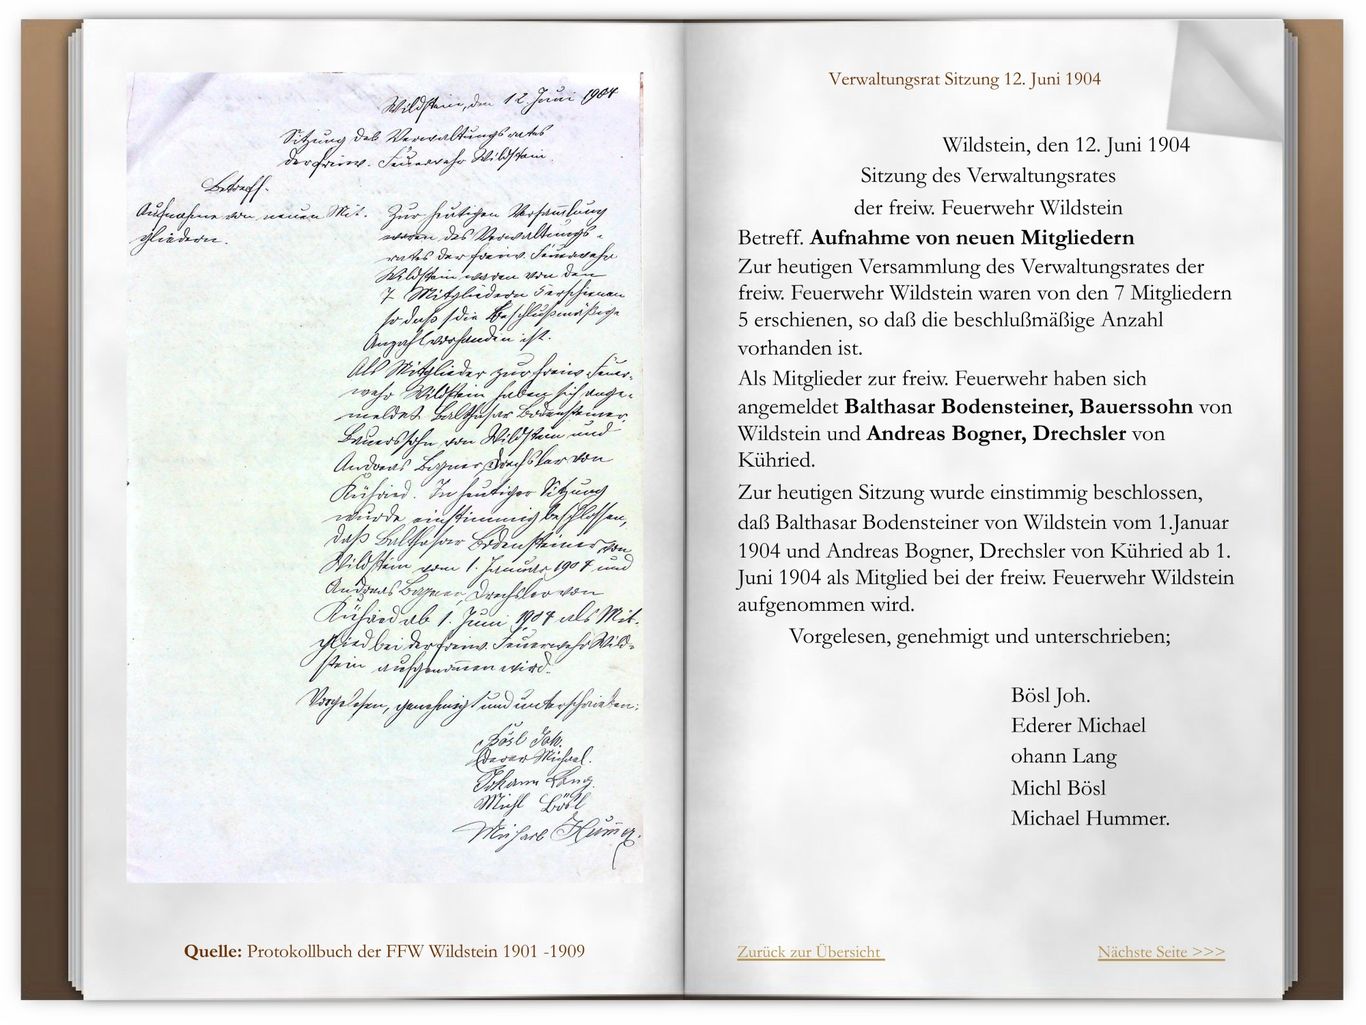 Wildstein, den 12. Juni 1904
Sitzung des Verwaltungsrates
der freiw. Feuerwehr Wildstein.
Betreff.
Aufnahme von neuen Mit-
gliedern.
Zur heutigen Versammlung
waren des Verwaltungs-
rates der freiw. Feuerwehr
Wildstein waren von den
7 Mitgliedern 5 erschienen
so daß die beschlußmäßige
Anzahl vorhanden ist.
Als Mitglieder zur freiw. Feuer-
wehr Wildstein haben sich ange-
meldet Balthasar Bodensteiner,
Bauerssohn von Wildstein und
Andreas Bogner, Drechsler von
Kühried. In heutiger Sitzung
wurde einstimmig beschlossen,
daß Balthasar Bodensteiner von
Wildstein vom 1. Januar 1904 und
Andreas Bogner, Drechsler von
Kühried ab 1. Juni 1904 als Mit-
glied bei der freiw. Feuerwehr Wild-
stein aufgenommen wird.
Vorgelesen, genehmigt und unterschrieben:
Bösl Joh.
Ederer Michael.
Johann Lang.
Michl Bösl
Michael Hummer.
Quelle: Protokollbuch der FFW Wildstein 1901 -1909
Verwaltungsrat Sitzung 12. Juni 1904
Wildstein, den 12. Juni 1904
Sitzung des Verwaltungsrates
der freiw. Feuerwehr Wildstein
Betreff. Aufnahme von neuen Mitgliedern
Zur heutigen Versammlung des Verwaltungsrates der
freiw. Feuerwehr Wildstein waren von den 7 Mitgliedern
5 erschienen, so daß die beschlußmäßige Anzahl
vorhanden ist.
Als Mitglieder zur freiw. Feuerwehr haben sich
angemeldet Balthasar Bodensteiner, Bauerssohn von
Wildstein und Andreas Bogner, Drechsler von
Kühried.
Zur heutigen Sitzung wurde einstimmig beschlossen,
daß Balthasar Bodensteiner von Wildstein vom 1.Januar
1904 und Andreas Bogner, Drechsler von Kühried ab 1.
Juni 1904 als Mitglied bei der freiw. Feuerwehr Wildstein
aufgenommen wird.
Vorgelesen, genehmigt und unterschrieben;
Bösl Joh.
Ederer Michael
ohann Lang
Michl Bösl
Michael Hummer.
Zurück zur Übersicht
Nächste Seite >>>